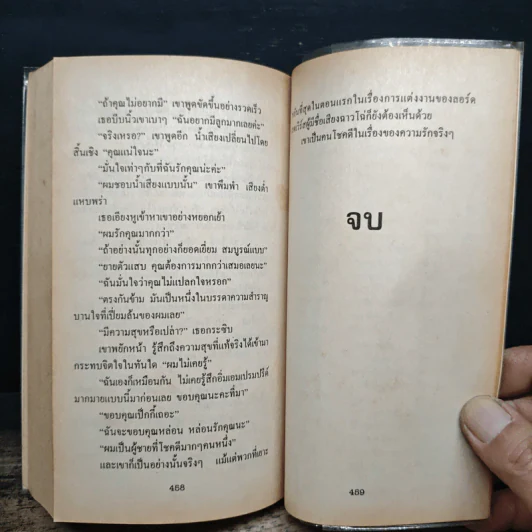 “ถ้าคุณไม่อยากมี” เขาพูดขัดขึ้นอย่างรวดเร็ว
เธอบีบนิ้วเขาเบาๆ “ฉันอยากมีลูกมากเลยค่ะ”
“จริงเหรอ?” เขาพูดอีก น้ำเสียงเปลี่ยนไปโดย
สิ้นเชิง “คุณแน่ใจนะ”
“มั่นใจเท่าๆกับที่ฉันรักคุณน่ะค่ะ”
“ผมชอบน้ำเสียงแบบนั้น” เขาพึมพำ เสียงต่ำ
แหบพร่า
เธอเอียงหูเข้าหาเขาอย่างหยอกเย้า
“ผมรักคุณมากกว่า”
“ถ้าอย่างนั้นทุกอย่างก็ยอดเยี่ยม สมบูรณ์แบบ”
“ยายตัวแสบ คุณต้องการมากกว่าเสมอเลยนะ”
“ฉันมั่นใจว่าคุณไม่แปลกใจหรอก”
“ตรงกันข้าม มันเป็นหนึ่งในบรรดาความสำราญ
บานใจที่เปี่ยมล้นของผมเลย”
“มีความสุขหรือเปล่า?” เธอกระซิบ
เขาพยักหน้า รู้สึกถึงความสุขที่แท้จริงได้เข้ามา
กระทบจิตใจในทันใด “ผมไม่เคยรู้”
“ฉันเองก็เหมือนกัน ไม่เคยรู้สึกอิ่มเอมเปรมปรีดิ์
มากมายแบบนี้มาก่อนเลย ขอบคุณนะคะที่มา”
“ขอบคุณเป็กกี้เถอะ”
“ฉันจะขอบคุณหล่อน หล่อนรักคุณนะ”
“ผมเป็นผู้ชายที่โชคดีมากๆคนหนึ่ง”
และเขาก็เป็นอย่างนั้นจริงๆ แม้แต่พวกที่
488
ที่สุดในตอนแรกในเรื่องการแต่งงานของลอร์ด
ผู้มีชื่อเสียงฉาวโฉ่ก็ยังต้องเห็นด้วย
เขาเป็นคนโชคดีในเรื่องของความรักจริงๆ
จบ
489